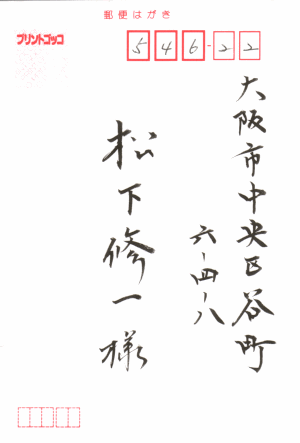 郵便はがき
プリントゴッコ
546-22
大阪市中央区谷町
六-四-八
松下修一様